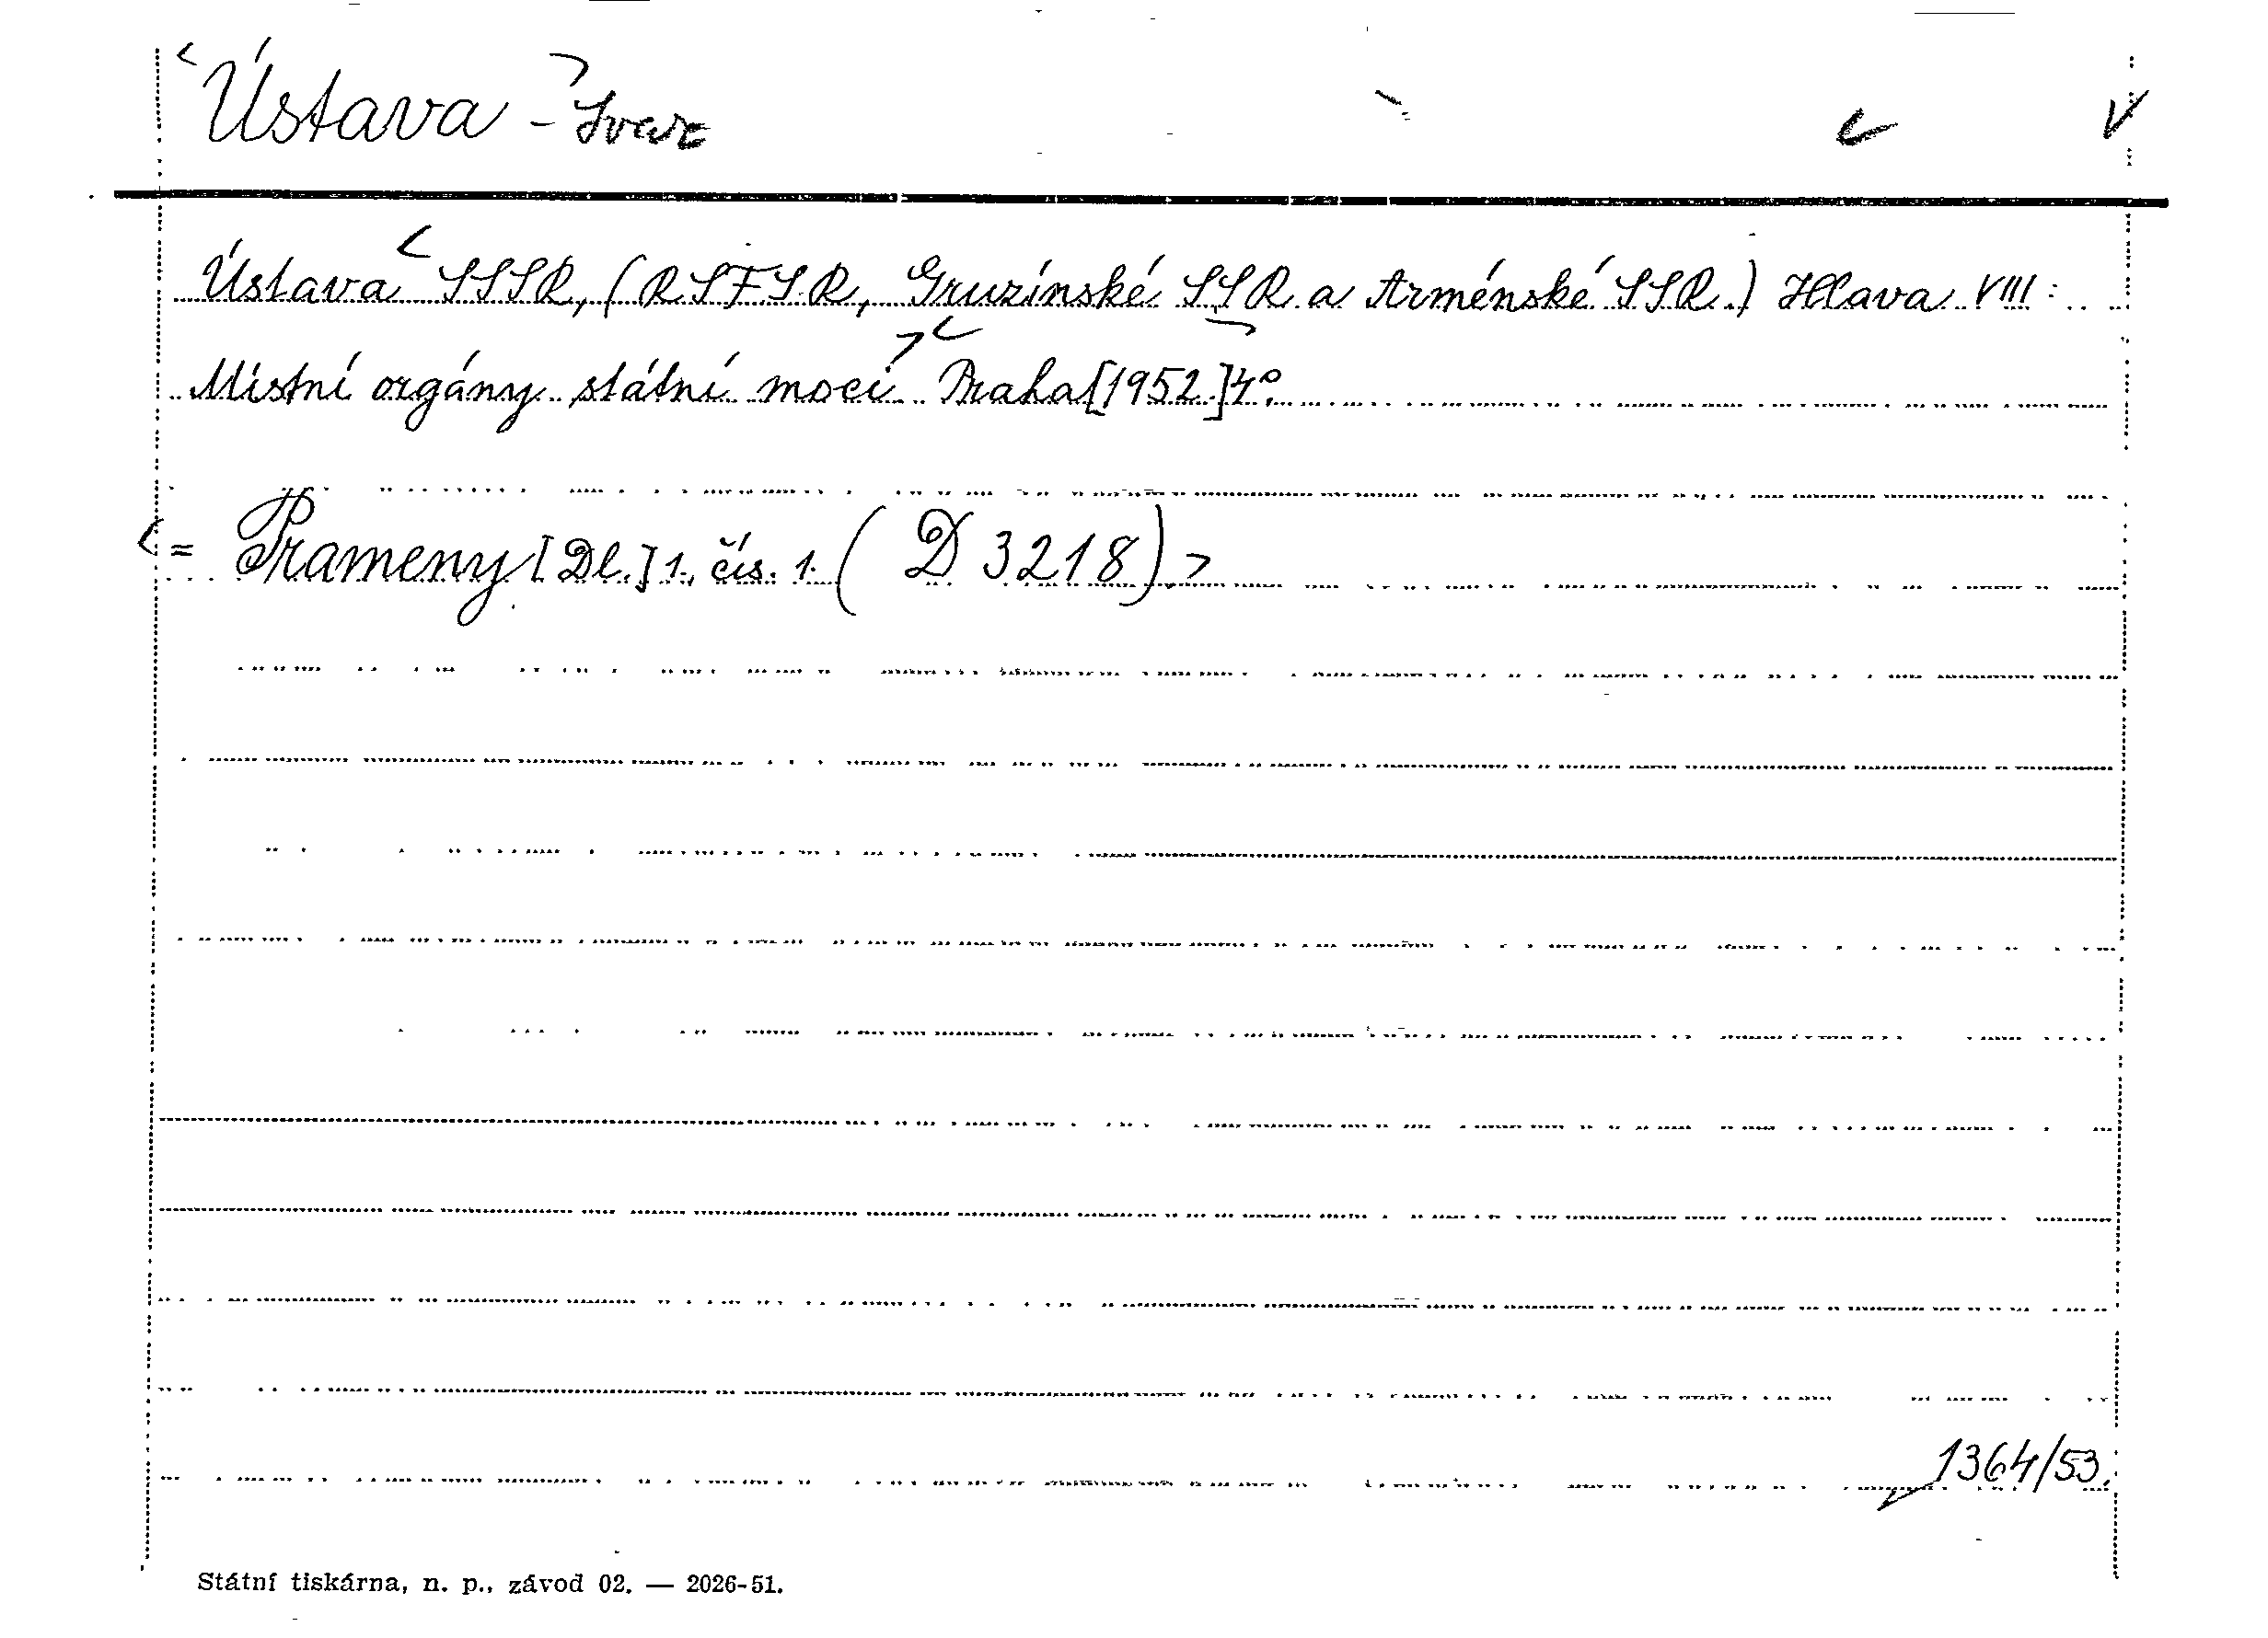 Ústava -
Ústava SSSR, (RSFSR, Gruzínské SSR a Arménské SSR.) Hlava VIII:
Místní orgány státní moci Praha [1952.] 4°.
= Prameny [Dl.] 1, čís. 1. ( D 3218).
1364/53.
Státní tiskárna, n. p., závod 02. — 2026-51.